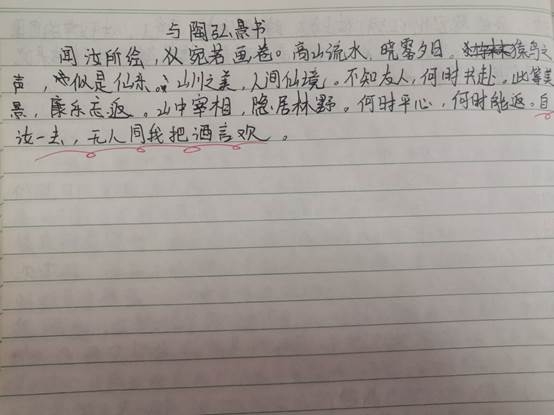 与陶弘景书
闻汝所绘,似宛若画卷。高山流水,晓雾夕日,猿鸟之
声,似是仙乐。山川之美,人间仙境。不知友人,何时共赴,此等美
景,康乐忘返。山中宰相,隐居林野。何时平心,何时能返。自
汝一去,无人同我把酒言欢。